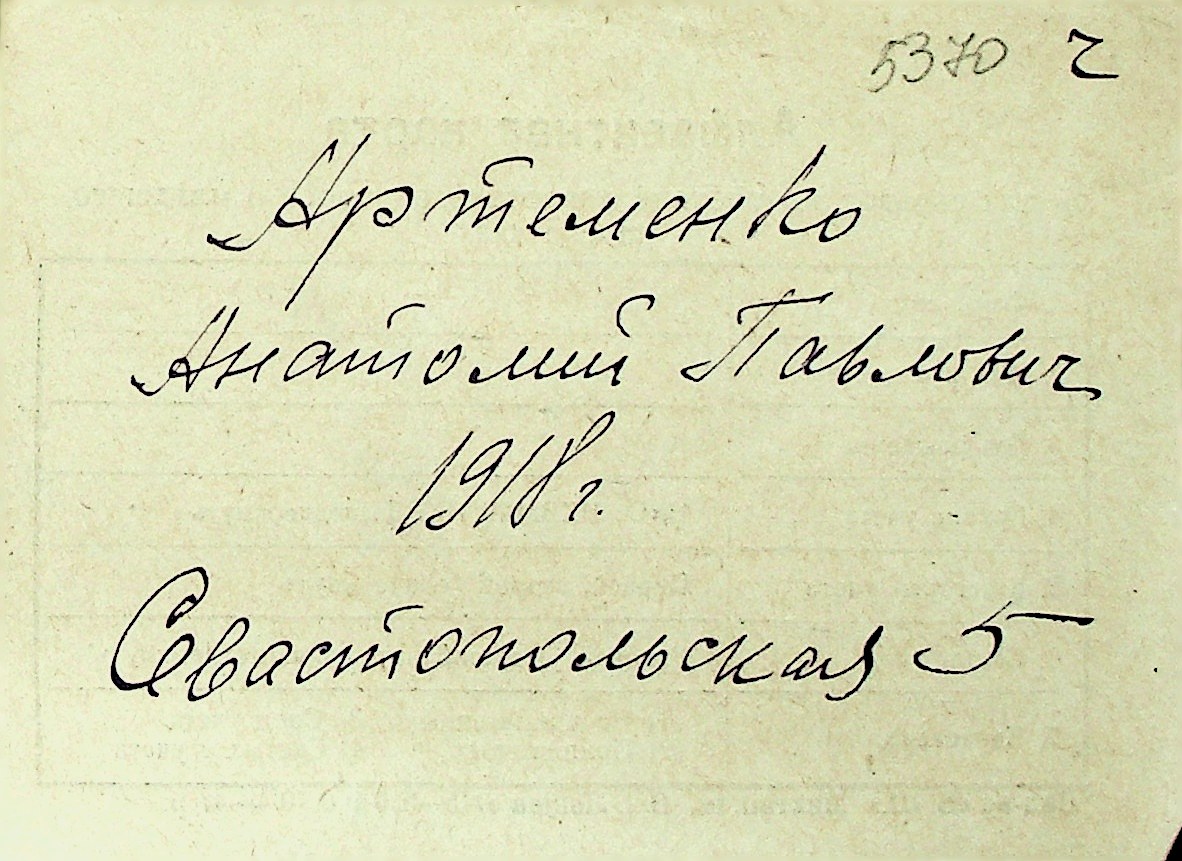 5370 ч
Артеменко
Анатолий Павлович
1918 г.
Севастопольская 5